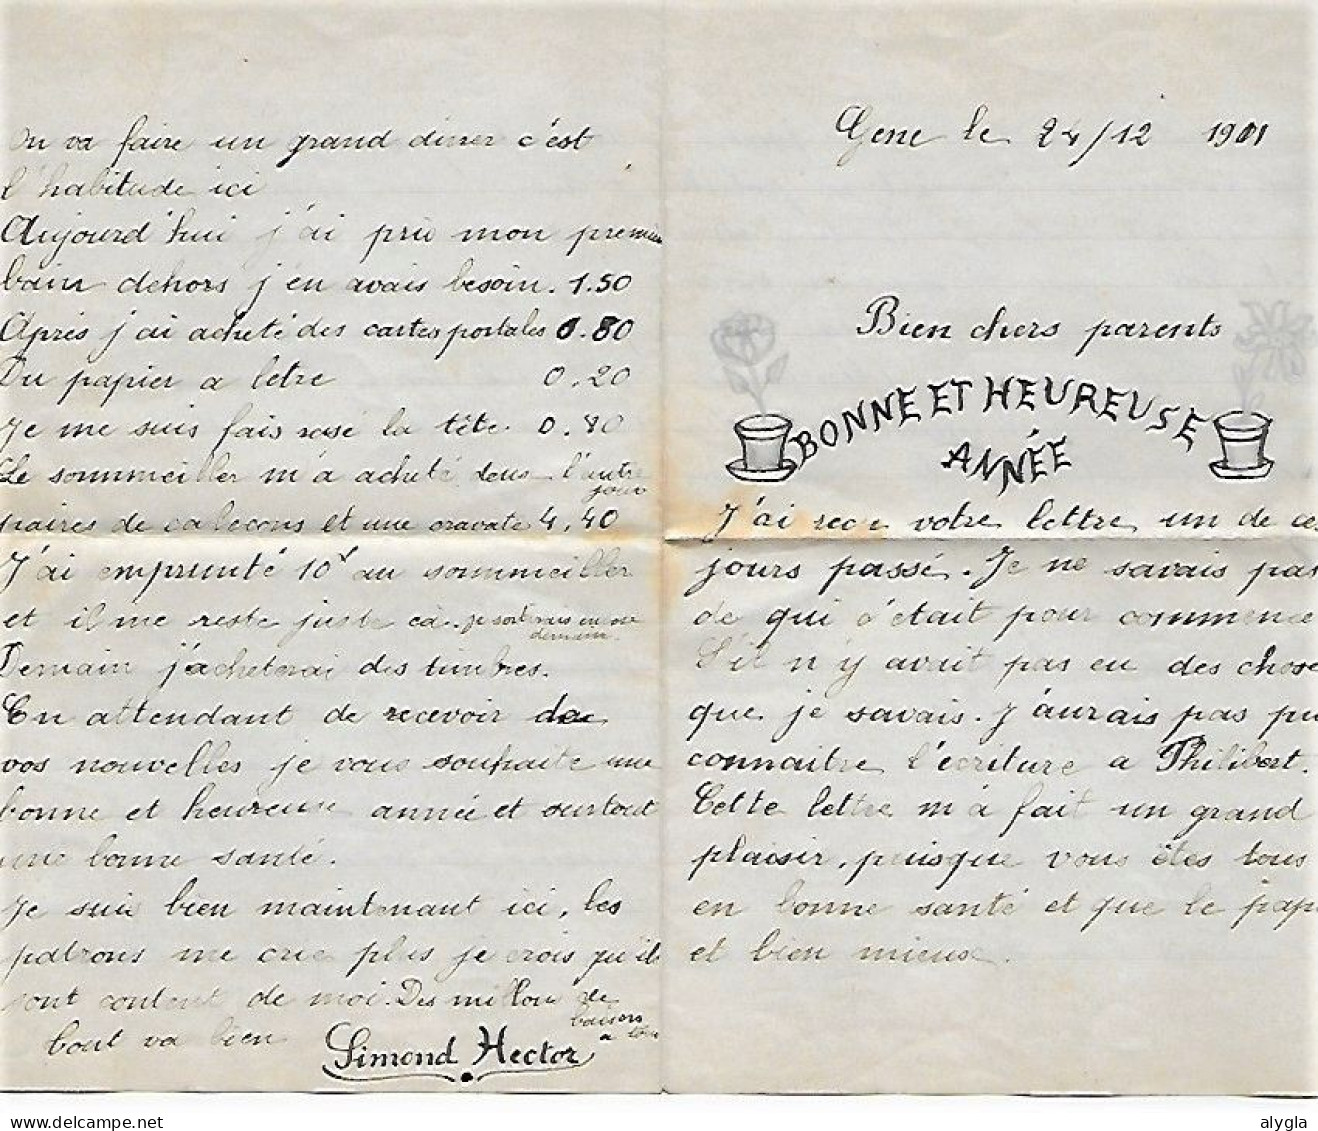 Gene le 24/12 1901
Bien chers parents
BONNE ET HEUREUSE
ANNÉE
J'ai reçu votre lettre un de ces
jours passé. Je ne savais pas
de qui c'était pour commence
S'il n'y avait pas eu des chose
que je savais. J'aurais pas pu
connaitre l'écriture a Philibert.
Cette lettre m'a fait un grand
plaisir, puisque vous êtes tous
en bonne santé et que le pap
et bien mieux.
On va faire un grand diner c'est
l'habitude ici
Aujourd'hui j'ai pris mon premier
bain dehors j'en avais besoin. 1.50
Après j'ai acheté des cartes postales 0.80
Du papier a letre 0.20
Je me suis fais rasé la tête. 0.80
Le sommeiller m'a acheté deux l'autre
jour
paires de caleçons et une cravate 4,40
J'ai emprunté 10 au sommeiller
et il me reste juste ça. je sort
demain.
Demain j'acheterai des timbres.
En attendant de recevoir de
vos nouvelles je vous souhaite une
bonne et heureuse année et surtout
une bonne santé.
Je suis bien maintenant ici, les
patrons me crie plus je crois qu'ils
sont content de moi. Des millon de
baisers
a tous
tout va bien
Simond Hector
alygla